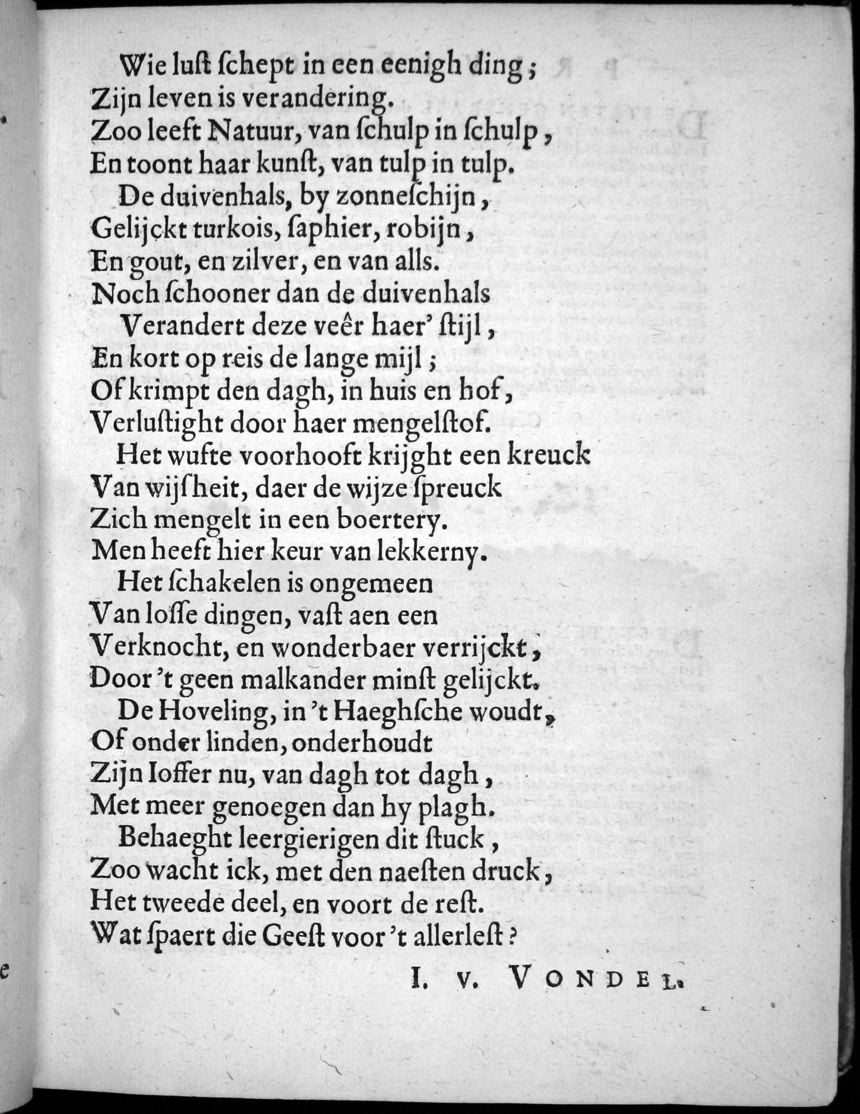 Wie luſt ſchept in een eenigh ding;
Zijn leven is verandering.
Zoo leeft Natuur, van ſchulp in ſchulp,
En toont haar kunſt, van tulp in tulp.
De duivenhals, by zonneſchijn,
Gelijckt turkois, ſaphier, robijn,
En gout, en zilver, en van alls.
Noch ſchooner dan de duivenhals
Verandert deze veêr haer' ſtijl,
En kort op reis de lange mijl;
Of krimpt den dagh, in huis en hof,
Verluſtight door haer mengelſtof.
Het wufte voorhooft krijght een kreuck
Van wijſheit, daer de wijze ſpreuck
Zich mengelt in een boertery.
Men heeft hier keur van lekkerny.
Het ſchakelen is ongemeen
Van loſſe dingen, vaſt aen een
Verknocht, en wonderbaer verrijckt,
Door 't geen malkander minſt gelijckt.
De Hoveling, in 't Haeghſche woudt,
Of onder linden, onderhoudt
Zijn Ioffer nu, van dagh tot dagh,
Met meer genoegen dan hy plagh.
Behaeght leergierigen dit ſtuck,
Zoo wacht ick, met den naeſten druck,
Het tweede deel, en voort de reſt.
Wat ſpaert die Geeſt voor 't allerleſt?
I. v. VONDEL.